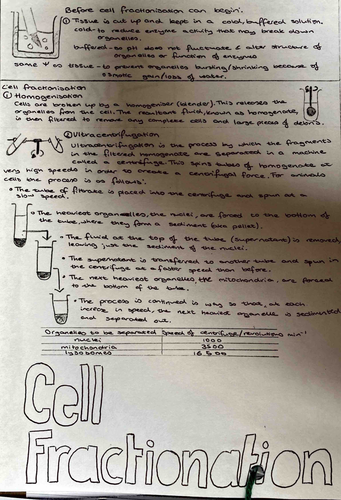 Before cell fractionisation can begin:
① Tissue is cut up and kept in a cold, buffered solution.
cold - to reduce enzyme activity that may break down
organelles.
buffered - so pH does not fluctuate & alter structure of
organelles or function of enzymes
same ψ as tissue - to prevent organelles bursting/shrinking because of
osmotic gain/loss of water.
Cell fractionisation
① Homogenisation
Cells are broken up by a homogeniser (blender). This releases the
organelles from the cell. The resultant fluid, known as homogenate,
is then filtered to remove any complete cells and large pieces of debris.
② Ultracentrifugation
Ultracentrifugation is the process in which the fragments
in the filtered homogenate are separated in a machine
called a centrifuge. This spins tubes of homogenate at
very high speeds in order to create a centrifugal force. For animal
cells the process is as follows:
• The tube of filtrate is placed into the centrifuge and spun at a
slow speed.
• The heaviest organelles, the nuclei, are forced to the bottom of
the tube, where they form a sediment (aka pellet).
• The fluid at the top of the tube (supernatant) is removed,
leaving just the sediment of the nuclei.
• The supernatant is transferred to another tube and spun in
the centrifuge at a faster speed than before.
• The next heaviest organelles, the mitochondria, are forced
to the bottom of the tube.
• The process is continued in way so that, at each
increase in speed, the next heaviest organelle is sedimented
and separated out.
Organelles to be separated Speed of centrifuge/revolutions min⁻¹
nuclei 1000
mitochondria 3500
lysosomes 16 500
Cell
Fractionation